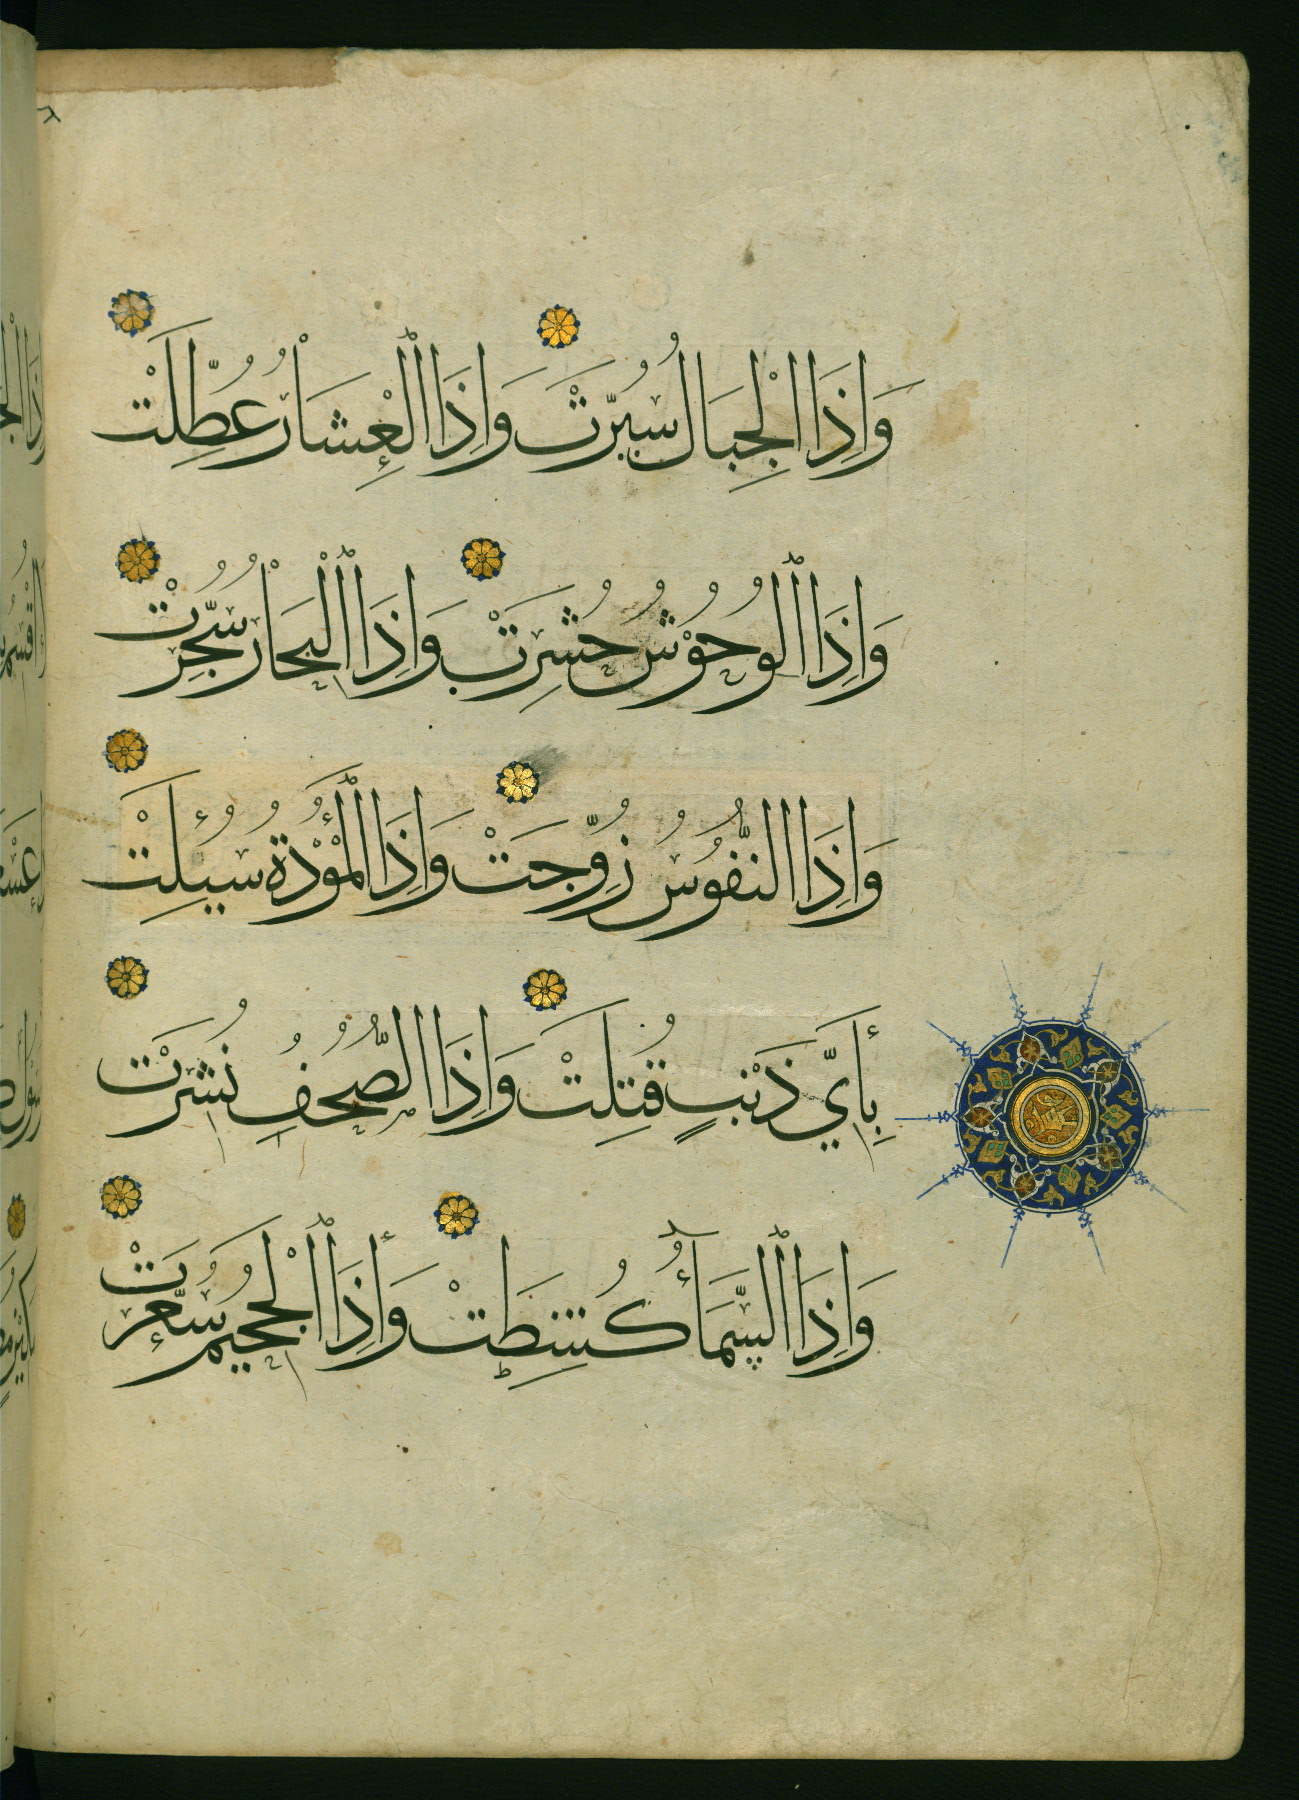 وَاِذَا الْجِبَالُ سُيِّرَتْ وَاِذَا الْعِشَارُ عُطِّلَتْ
وَاِذَا الْوُحُوْشُ حُشِرَتْ وَاِذَا الْبِحَارُ سُجِّرَتْ
وَاِذَا النُّفُوْسُ زُوِّجَتْ وَاِذَا الْمَوْؤُدَةُ سُئِلَتْ
بِأَيِّ ذَنْبٍ قُتِلَتْ وَاِذَا الصُّحُفُ نُشِرَتْ
وَاِذَا السَّمَآءُ كُشِطَتْ وَاِذَا الْجَحِيْمُ سُعِّرَتْ